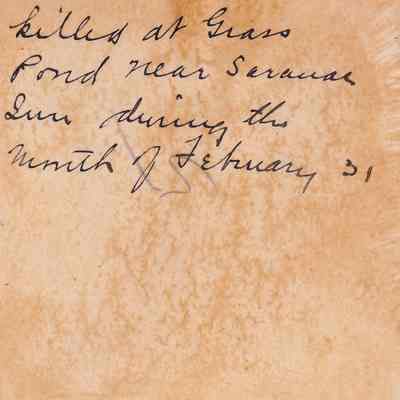 killed at Grass
Pond near Saranac
Inn during the
month of February 31